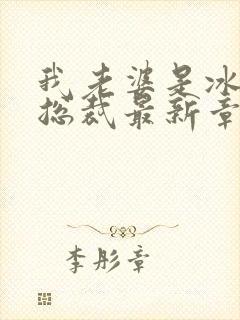 我老婆是冰
总裁最新章
李彤章